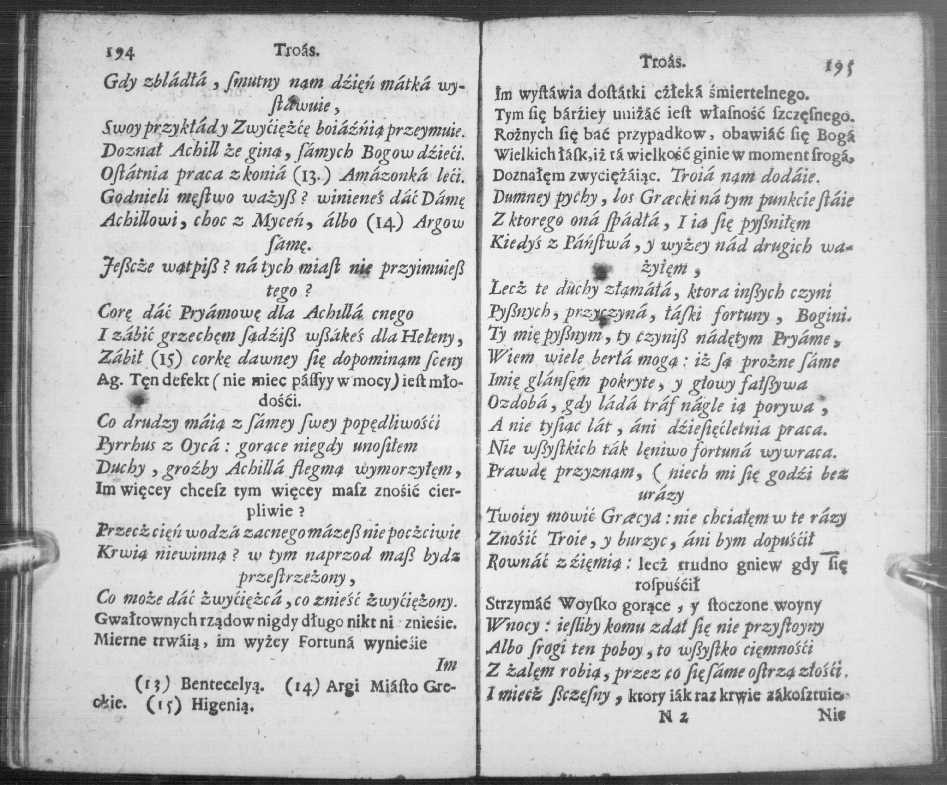 194 Troás.
Gdy zbládłá, ſmutny nąm dźięń mátká wy-
ſtáwuie,
Swoy przykłády Zwyćięźćę boiáźńią przeymuie.
Doznał Achill że giną, ſámych Bogow dźieći.
Oſtátnia praca z koniá (13.) Amázonká leći.
Godnieli męſtwo ważyſz? winieneś dáć Dámę
Achillowi, choc z Myceń, álbo (14) Argow
ſamę.
Jeſzcże wątpiſz? ná tych miaſt nie przyimuieſz
tego?
Corę dáć Pryámowę dla Achillá cnego
I zábić grzechęm ſądźiſz wſzákeś dla Heleny,
Zábił (15) corkę dawney ſię dopominąm ſceny
Ag. Tęn defekt (nie miec páſſyy w mocy) ieſt mło-
dośći.
Co drudzy máią z ſámey ſwey popędliwośći
Pyrrhus z Oycá: gorące niegdy unoſiłem
Duchy, groźby Achillá flegmą wymorzyłęm,
Im więcey chceſz tym więcey maſz znośić cier-
pliwie?
Przecż cięń wodzá zacnego mázeſz nie pocżciwie
Krwią niewinną? w tym naprzod maſz bydź
przeſtrzeżony,
Co może dáć żwyćięźcá, co znieść żwyćiężony.
Gwałtownych rządow nigdy długo nikt ni znieśie.
Mierne trwáią, im wyżey Fortuná wynieśie
Im
(13) Bentecelyą. (14) Argi Miáſto Gre-
ckie. (15) Higenią.
Troás. 195
Im wyſtáwia doſtátki cżłeká śmiertelnego.
Tym ſię bárźiey uniżáć ieſt właſność ſzczęſnego.
Rożnych ſię bać przypadkow, obawiáć ſię Bogá
Wielkich łáſk, iż tá wielkość ginie w moment ſrogá,
Doznałęm zwyciężáiąc. Troiá nąm dodáie.
Dumney pychy, los Græcki ná tym punkcie ſtáie
Z ktorego oná ſpádłá, I ia ſię pyſzniłęm
Kiedyś z Páńſtwá, y wyżey nád drugich wa-
żyłęm,
Lecż te duchy złąmáłá, ktora inſzych czyni
Pyſznych, przyczyná, łáſki fortuny, Bogini.
Ty mię pyſznym, ty czyniſz nádętym Pryáme,
Wiem wiele berłá mogą: iż ſą prożne ſáme
Imię glánſęm pokryte, y głowy fałſzywa
Ozdobá, gdy ládá tráf nágle ią porywa,
A nie tyſiąć lát, áni dźieſięćletnia praca.
Nie wſzyſtkich ták lęniwo fortuná wywraca.
Prawdę przyznąm, (niech mi ſię godźi bez
urázy
Twoiey mowić Græcya: nie chciałęm w te rázy
Znośić Troie, y burzyc, áni bym dopuśćił
Rownáć z źięmią: lecż trudno gniew gdy ſię
roſpuśćił
Strzymáć Woyſko gorące, y ſtoczone woyny
Wnocy: ieſliby komu zdał ſię nie przyſtoyny
Albo ſrogi ten poboy, to wſzyſtko cięmnośći
Z żalęm robią, przez co ſię ſáme oſtrzą złośći.
I miecż ſzczęſny, ktory iák raz krwie zákoſztuie
N 2 Nie